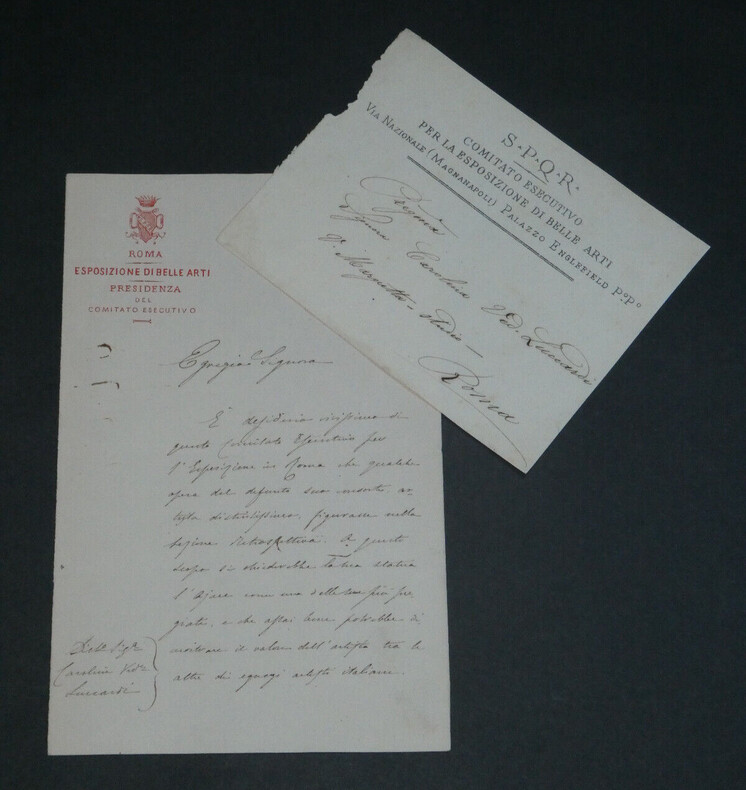 ROMA
ESPOSIZIONE DI BELLE ARTI
PRESIDENZA
DEL
COMITATO ESECUTIVO
Egregia Signora
È desiderio vivissimo di
questo Comitato Esecutivo per
l'Esposizione in Roma che qualche
opera del defunto suo marito, ar-
tista distintissimo, figurasse nella
sezione Retrospettiva. A questo
scopo si chiederebbe la sua statua
l'Ajace come una delle sue più pre-
giate, e che assai bene potrebbe di-
mostrare il valore dell'artista tra le
altre di egregi artisti italiani.
Sig.ra
Carolina Ved.a
Luccardi
S·P·Q·R·
COMITATO ESECUTIVO
PER LA ESPOSIZIONE DI BELLE ARTI
VIA NAZIONALE (MAGNANAPOLI) PALAZZO ENGLEFIELD P.º P.º
Pregma
Signora Carolina Ved. Luccardi
V. Margutta - Studio -
Roma